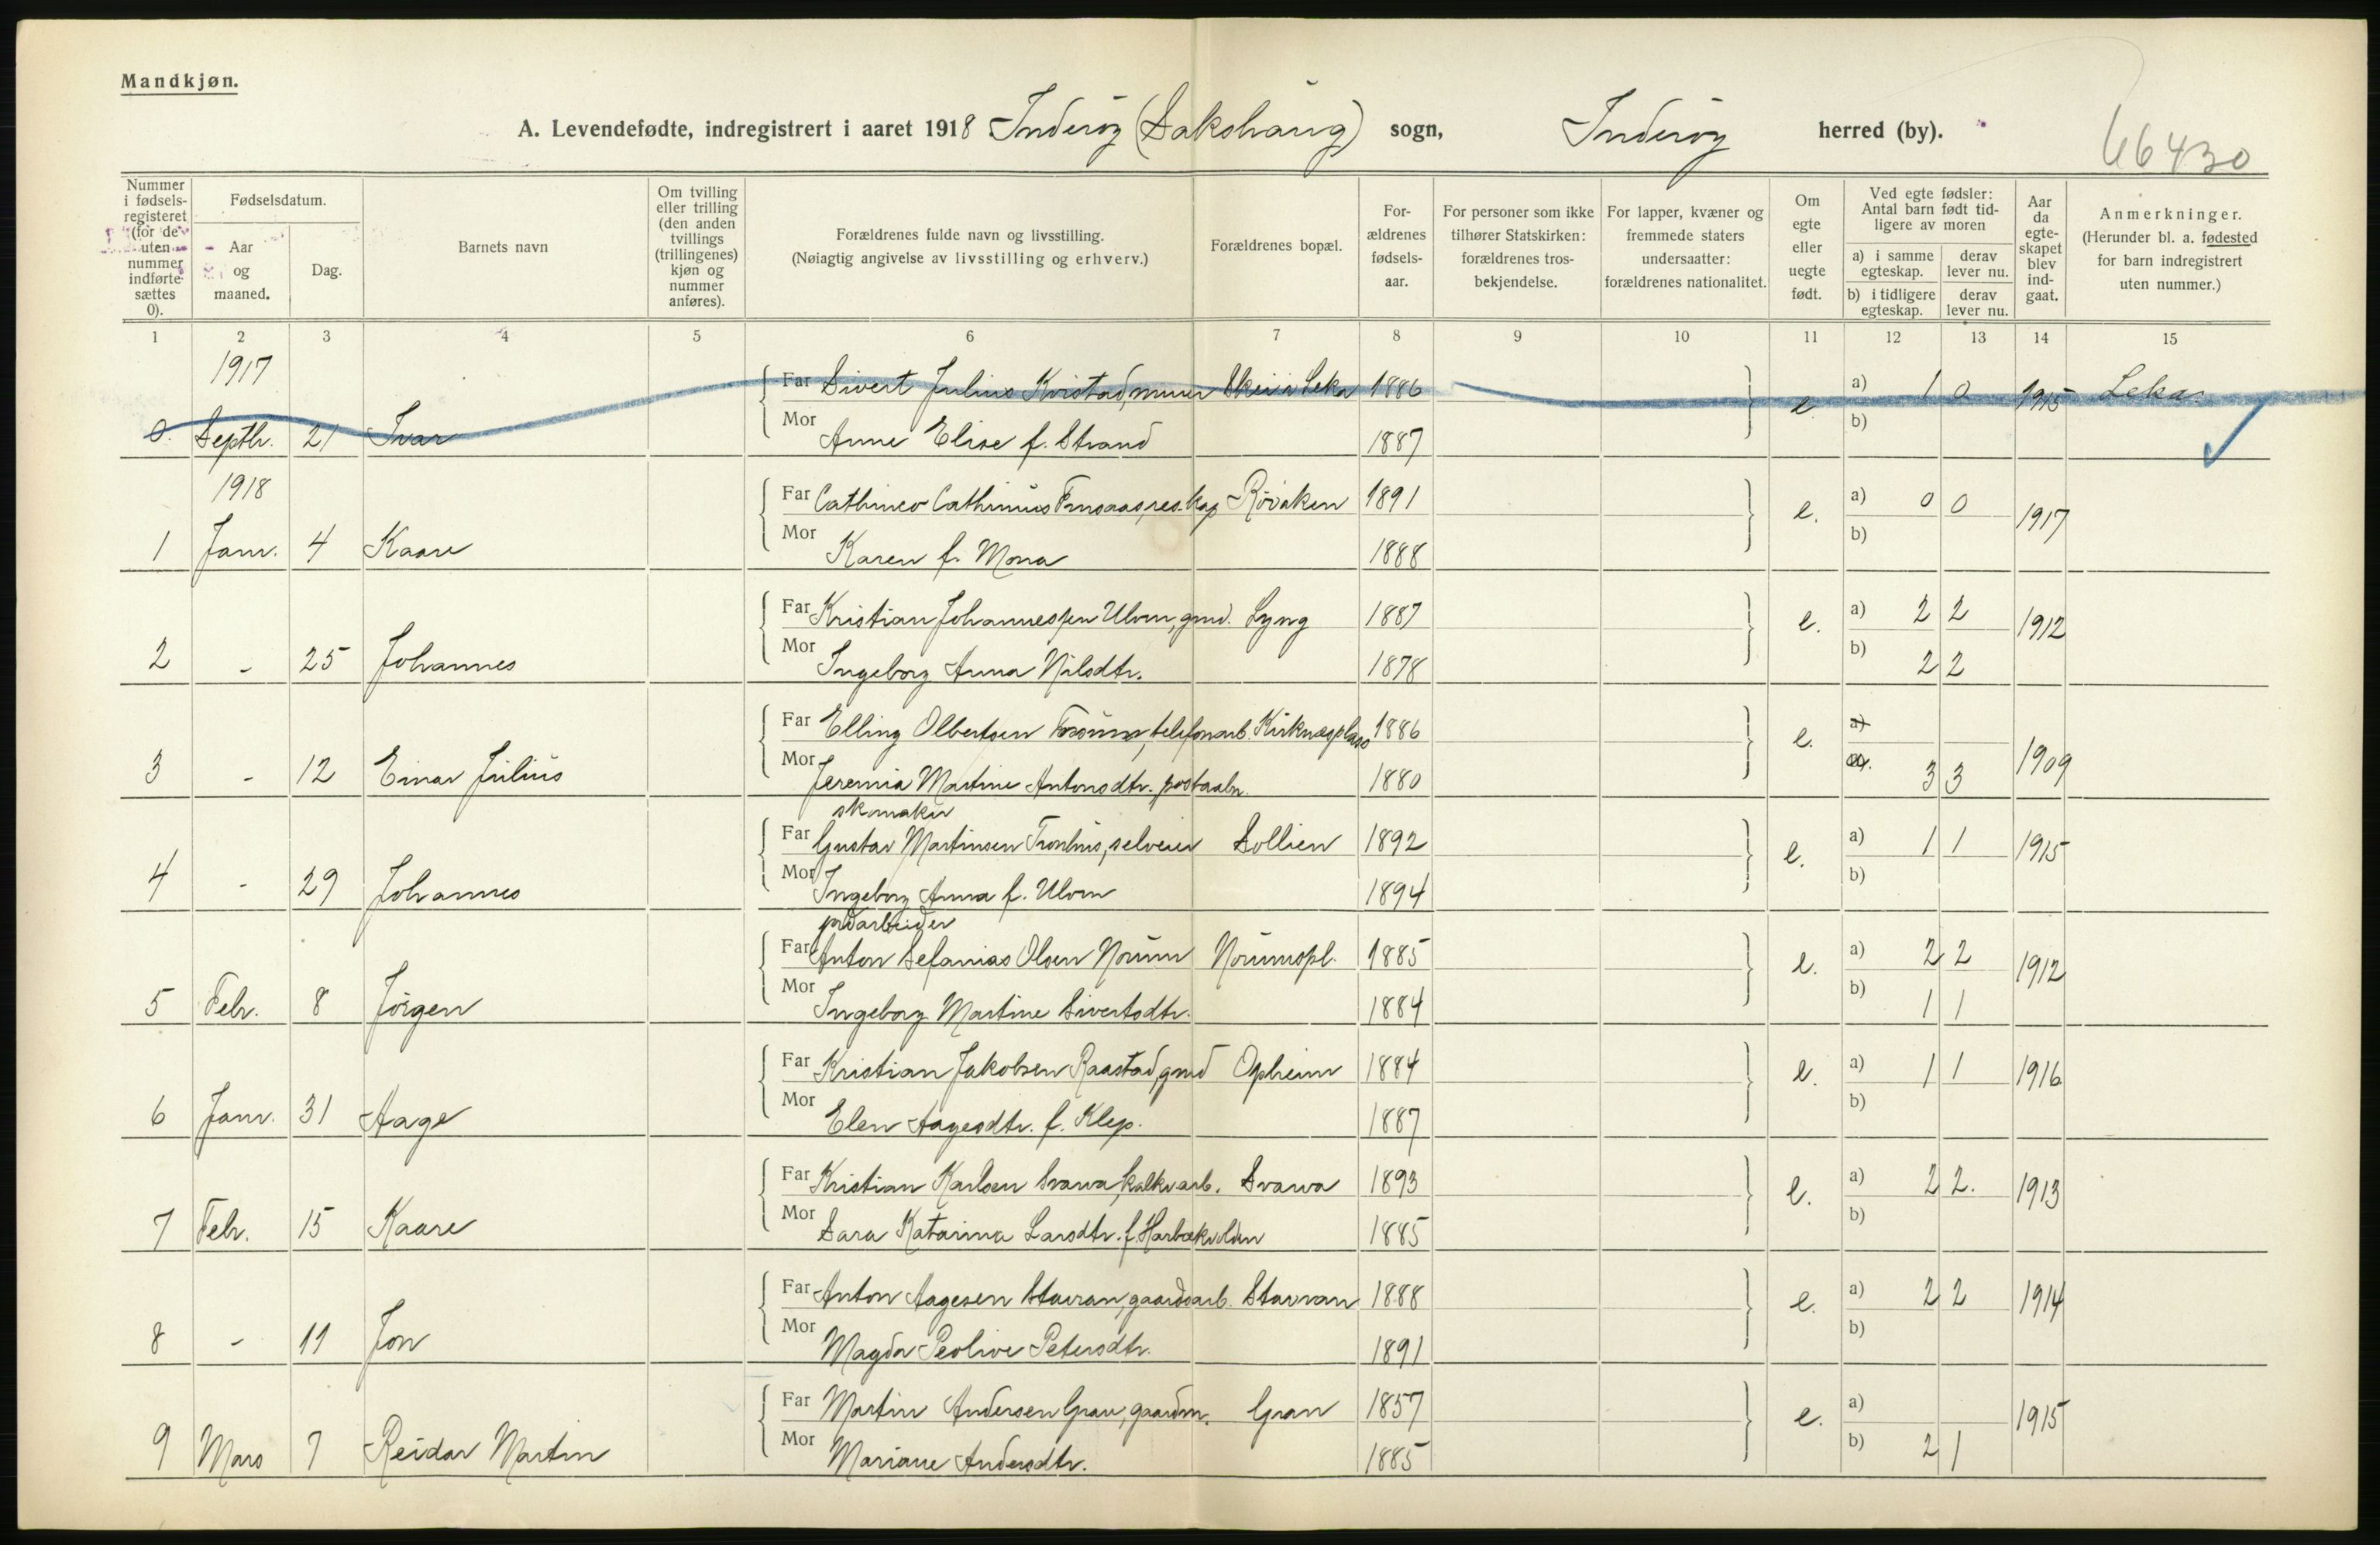 Mandkjøn.
A. Levendefødte, indregistrert i aaret 1918 Inderøy (Sakshaug) sogn, Inderøy herred (by).
66430
Nummer i fødsels-registeret (for de uten nummer indførte sættes 0).
Fødselsdatum.
Aar og maaned.
Dag.
Barnets navn
Om tvilling eller trilling (den anden tvillings (trillingenes) kjøn og nummer anføres).
Forældrenes fulde navn og livsstilling.
(Nøiagtig angivelse av livsstilling og erhverv.)
Forældrenes bopæl.
For-ældrenes fødsels-aar.
For personer som ikke tilhører Statskirken: forældrenes tros-bekjendelse.
For lapper, kvæner og fremmede staters undersaatter: forældrenes nationalitet.
Om egte eller uegte født.
Ved egte fødsler: Antal barn født tid-ligere av moren
a) i samme egteskap.
derav lever nu.
b) i tidligere egteskap.
derav lever nu.
Aar da egte-skapet blev ind-gaat.
Anmerkninger.
(Herunder bl. a. fødested for barn indregistrert uten nummer.)
1 2 3 4 5 6 7 8 9 10 11 12 13 14 15
1917
Far Sivert Julius Kvistad, murer Skei i Leka 1886 e. a) 1 0 1915 Leka.
0. Septbr. 21 Ivar Mor Anne Elise f. Strand 1887 b)
1918
Far Cathinco Cathinius res. kap Røvaken 1891 e. a) 0 0 1917
1 Janr. 4 Kaare Mor Karen f. Mona 1888 b)
Far Kristian Johannessen Ulven, gmd. Lyng 1887 e. a) 2 2 1912
2 - 25 Johannes Mor Ingeborg Anna Nilsdtr. 1878 b) 2 2
Far Elling Olbertsen telefonarb. Kirknesplass 1886 e. a)
3 - 12 Einar Julius Mor Jeremia Martine Antonsdtr. postaabn. 1880 a. 3 3 1909
skomaker
Far Gustav Martinsen selveier Sollien 1892 e. a) 1 1 1915
4 - 29 Johannes Mor Ingeborg Anna f. Ulven 1894 b)
jordarbeider
Far Anton Sefanias Olsen Norum Norumspl. 1885 e. a) 2 2 1912
5 Febr. 8 Jörgen Mor Ingeborg Martine Sivertsdtr. 1884 b) 1 1
Far Kristian Jakobsen Raastad, gmd Opheim 1884 e. a) 1 1 1916
6 Janr. 31 Aage Mor Elen Aagesdtr. f. Klep. 1887 b)
Far Kristian Karlsen Svarva, kalkv.arb. Svarva 1893 e. a) 2 2. 1913
7 Febr. 15 Kaare Mor Sara Katarina Larsdtr. f. Harbakvolden 1885 b)
Far Anton Aagesen Stavran, gaardsarb. Stavran 1888 e. a) 2 2 1914
8 - 11 Jon Mor Magda Peolive Petersdtr. 1891 b)
Far Martin Andersen Gran, gaardm. Gran 1857 e. a) 1915
9 Mars 7 Reidar Martin Mor Mariane Andersdtr. 1885 b) 2 1